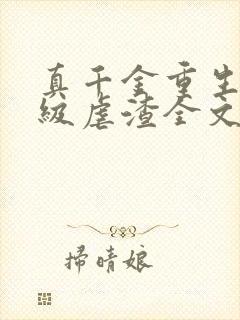 真千金重生
级虐渣全文
掃晴娘